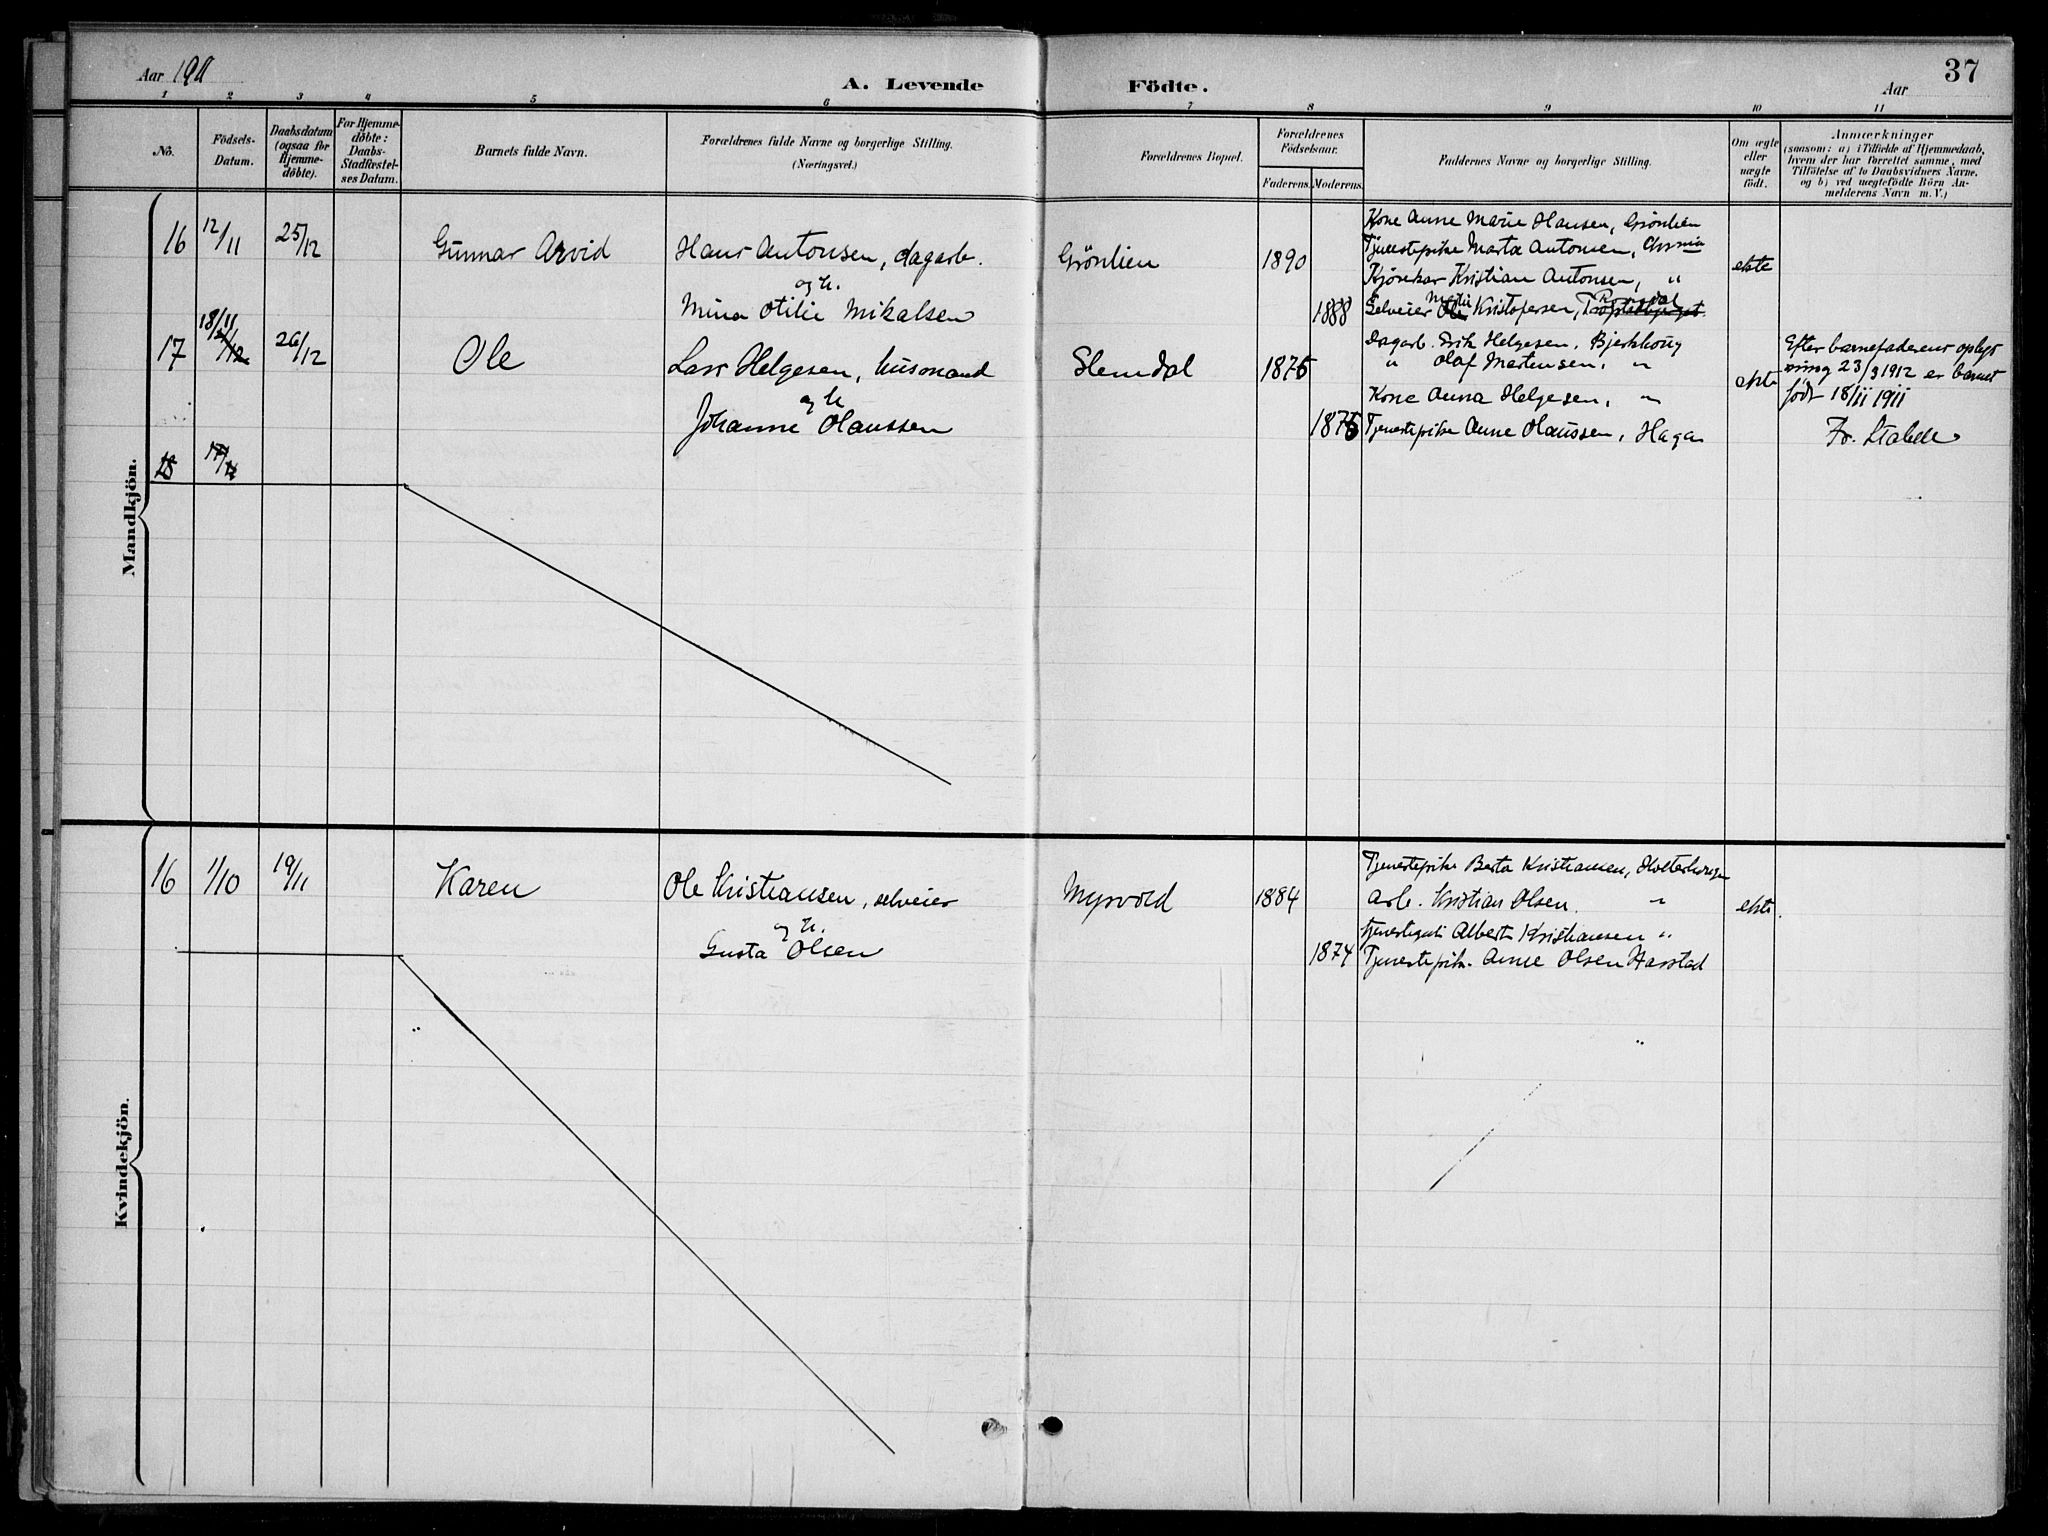 Aar 1911
A. Levende
Födte.
Aar
37
1 2 3 4 5 6 7 8 9 10 11
No.
Födsels-
Datum.
Daabsdatum
(ogsaa for
Hjemme-
döbte).
For Hjemme-
döbte:
Daabs-
Stadfæstel-
ses Datum.
Barnets fulde Navn.
Forældrenes fulde Navne og borgerlige Stilling.
(Næringsvei.)
Forældrenes Bopæl.
Forældrenes
Födselsaar.
Faderens. Moderens.
Faddernes Navne og borgerlige Stilling.
Om ægte
eller
uægte
födt.
Anmærkninger
(saasom: a) i Tilfælde af Hjemmedaab,
hvem der har forrettet samme, med
Tilföielse af to Daabsvidners Navne,
og b) ved uægtefödte Börn An-
melderens Navn m. V.)
Mandkjön.
16 12/11 25/12 Gunnar Arvid Hans Antonsen, dagarb.
og h.
Mina Otilie Mikalsen
Grönlien 1890
1888
Kone Anne Marie Hansen, Grönlien
Tjenestepike Marta Antonsen, Chrania
Kjörekar Kristian Antonsen, "
Selveier Martin Kristofersen,
ekte
17 18/11 26/12 Ole Lars Helgesen, husmand
og h
Johanne Olaussen
Slemdal 1876
1876
Dagarb. Erik Helgesen, Bjerkhoug
" Olaf Martensen, "
Kone Anna Helgesen, "
Tjenestepike Anne Olaussen, Haga
ekte
Efter barnefaderens oplys
ning 23/3 1912 er barnet
födt 18/11 1911
Fr. Stabell
18 17/12
Kvindekjön.
16 1/10 19/11 Karen Ole Kristiansen, selveier
og h.
Gusta Olsen
Myrvold 1884
1874
Tjenestepike Berta Kristiansen, Holterhaugen
Arb. Kristian Olsen "
Tjenestegut Albert Kristiansen "
Tjenestepik. Anne Olsen Harstad
ekte.